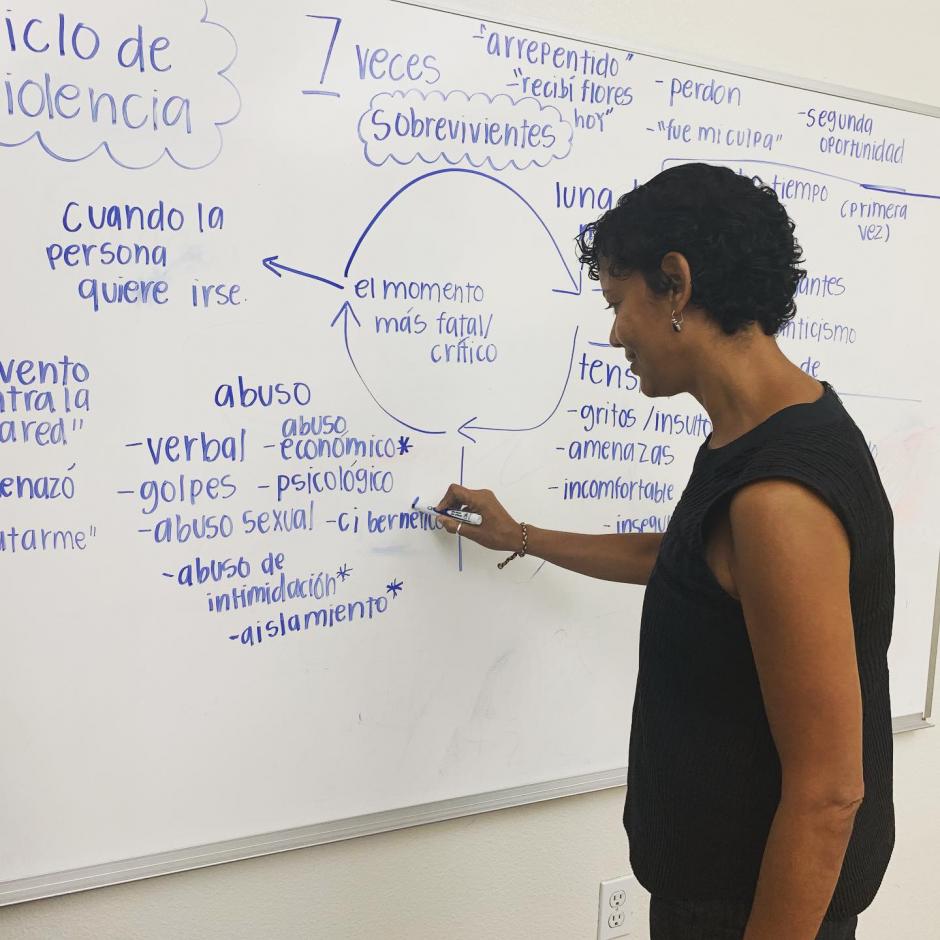 iclo de
iolencia
7 veces
-"arrepentido"
-"recibí flores
hoy"
-perdon
-"fue mi culpa"
-segunda
oportunidad
Sobrevivientes
luna
tiempo
(primera
vez)
antes
nticismo
de
cuando la
persona
quiere irse.
el momento
más fatal/
crítico
vento
tra la
ared"
enazó
tarme"
abuso
-verbal
-golpes
-abuso sexual
-abuso de
intimidación*
-aislamiento*
abuso
-económico*
-psicológico
-cibernético
tens
-gritos/insulto
-amenazas
-incomfortable
-insegu